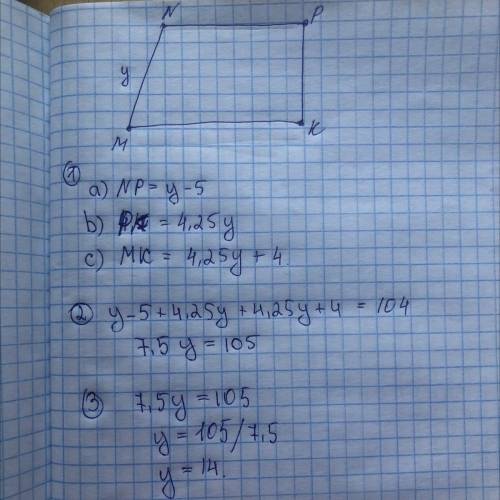 N
P
y
M
K
①
a) NP = y - 5
b) PK = 4,25y
c) MK = 4,25y + 4
② y - 5 + 4,25y + 4,25y + 4 = 104
7,5 y = 105
③ 7,5y = 105
y = 105/7,5
y = 14.